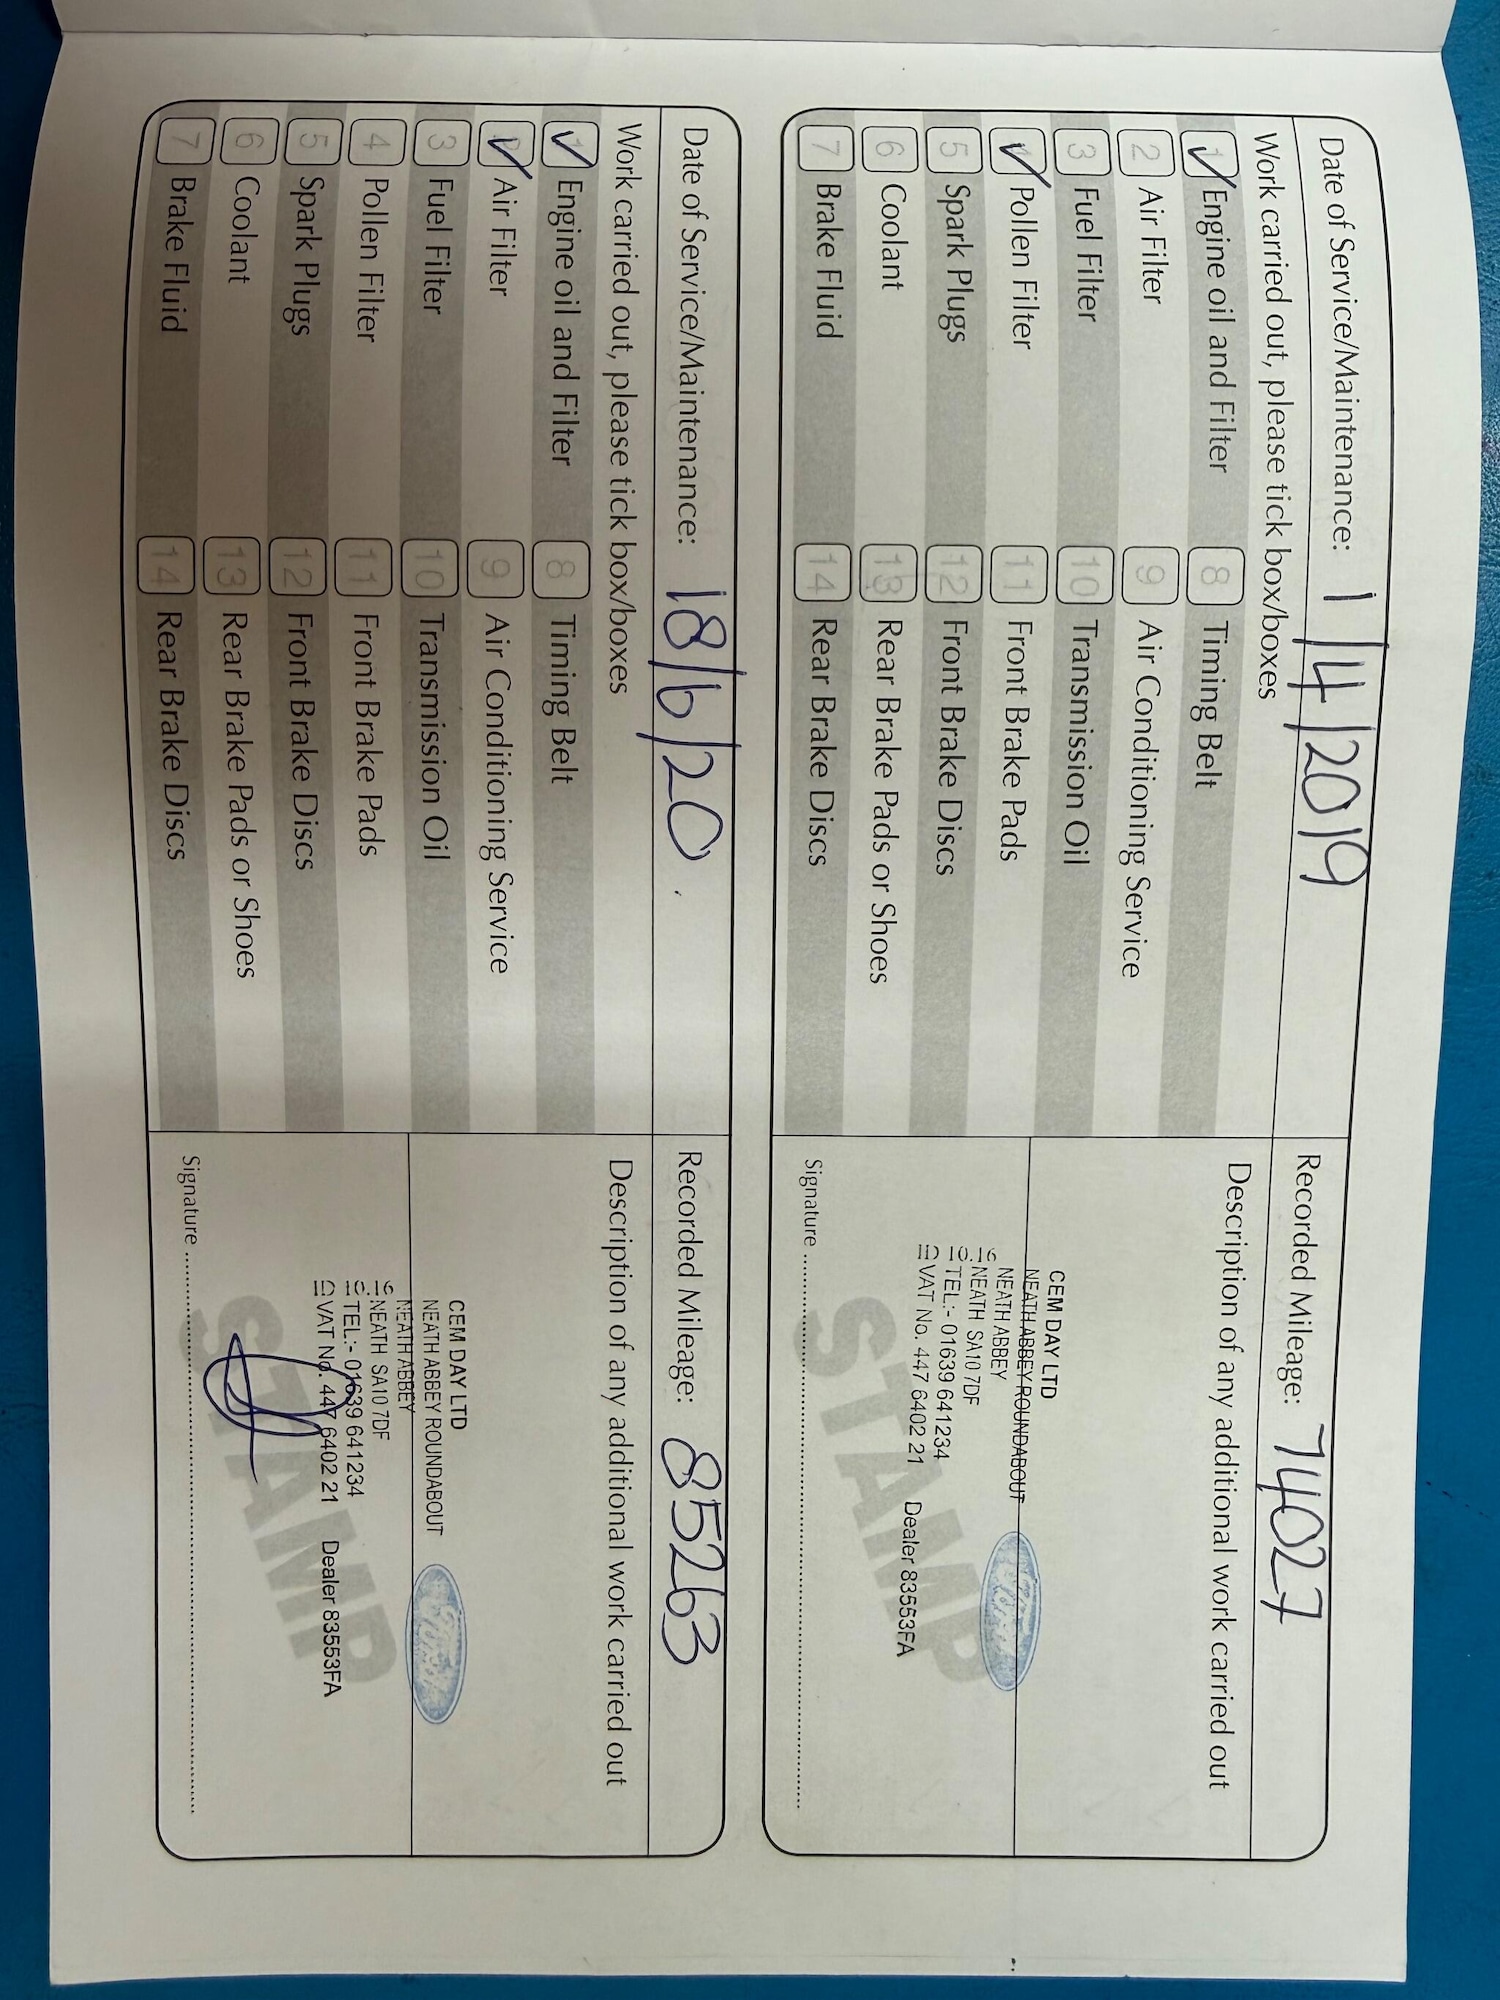 Date of Service/Maintenance: 1/4/2019 Recorded Mileage: 74027
Work carried out, please tick box/boxes
Description of any additional work carried out
✓ Engine oil and Filter 8 Timing Belt
2 Air Filter 9 Air Conditioning Service
3 Fuel Filter 10 Transmission Oil
✓ Pollen Filter 11 Front Brake Pads
5 Spark Plugs 12 Front Brake Discs
6 Coolant 13 Rear Brake Pads or Shoes
7 Brake Fluid 14 Rear Brake Discs
CEM DAY LTD
NEATH ABBEY ROUNDABOUT
NEATH ABBEY
NEATH SA10 7DF
TEL:- 01639 641234
VAT No. 447 6402 21 Dealer 83553FA
STAMP
Signature
Date of Service/Maintenance: 18/6/20 Recorded Mileage: 85263
Work carried out, please tick box/boxes
Description of any additional work carried out
✓ Engine oil and Filter 8 Timing Belt
✓ Air Filter 9 Air Conditioning Service
3 Fuel Filter 10 Transmission Oil
4 Pollen Filter 11 Front Brake Pads
5 Spark Plugs 12 Front Brake Discs
6 Coolant 13 Rear Brake Pads or Shoes
7 Brake Fluid 14 Rear Brake Discs
CEM DAY LTD
NEATH ABBEY ROUNDABOUT
NEATH ABBEY
NEATH SA10 7DF
TEL:- 01639 641234
VAT No. 447 6402 21 Dealer 83553FA
STAMP
Signature